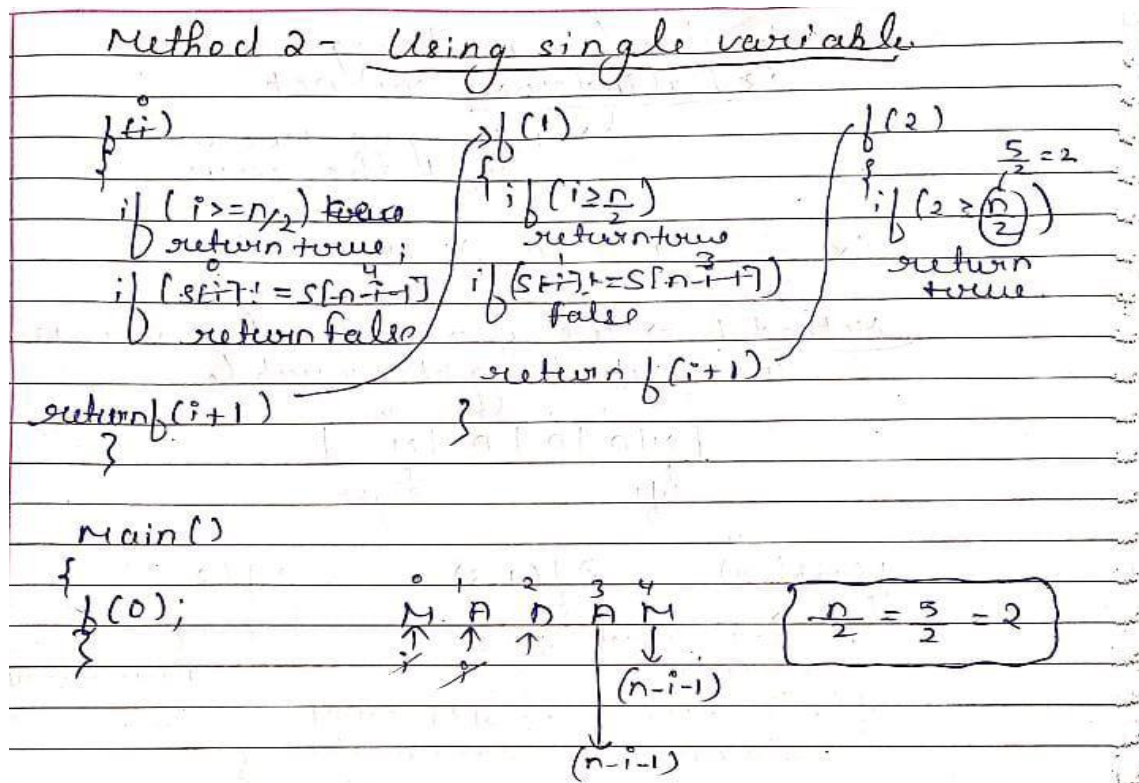 Method 2 - Using single variable
0
f(i)
{
if (i>=n/2)
return true;
0 4
if (s[i] != s[n-i-1]
return false
return f(i+1)
}
f(1)
{
if (i≥n/2)
return true
1 3
if (s[i] != s[n-i-1])
false
return f(i+1)
}
f(2)
5/2 = 2
{
if (2 ≥ n/2)
return
true
Main()
{
f(0);
}
0 1 2 3 4
M A D A M
i i
(n-i-1)
(n-i-1)
n/2 = 5/2 = 2